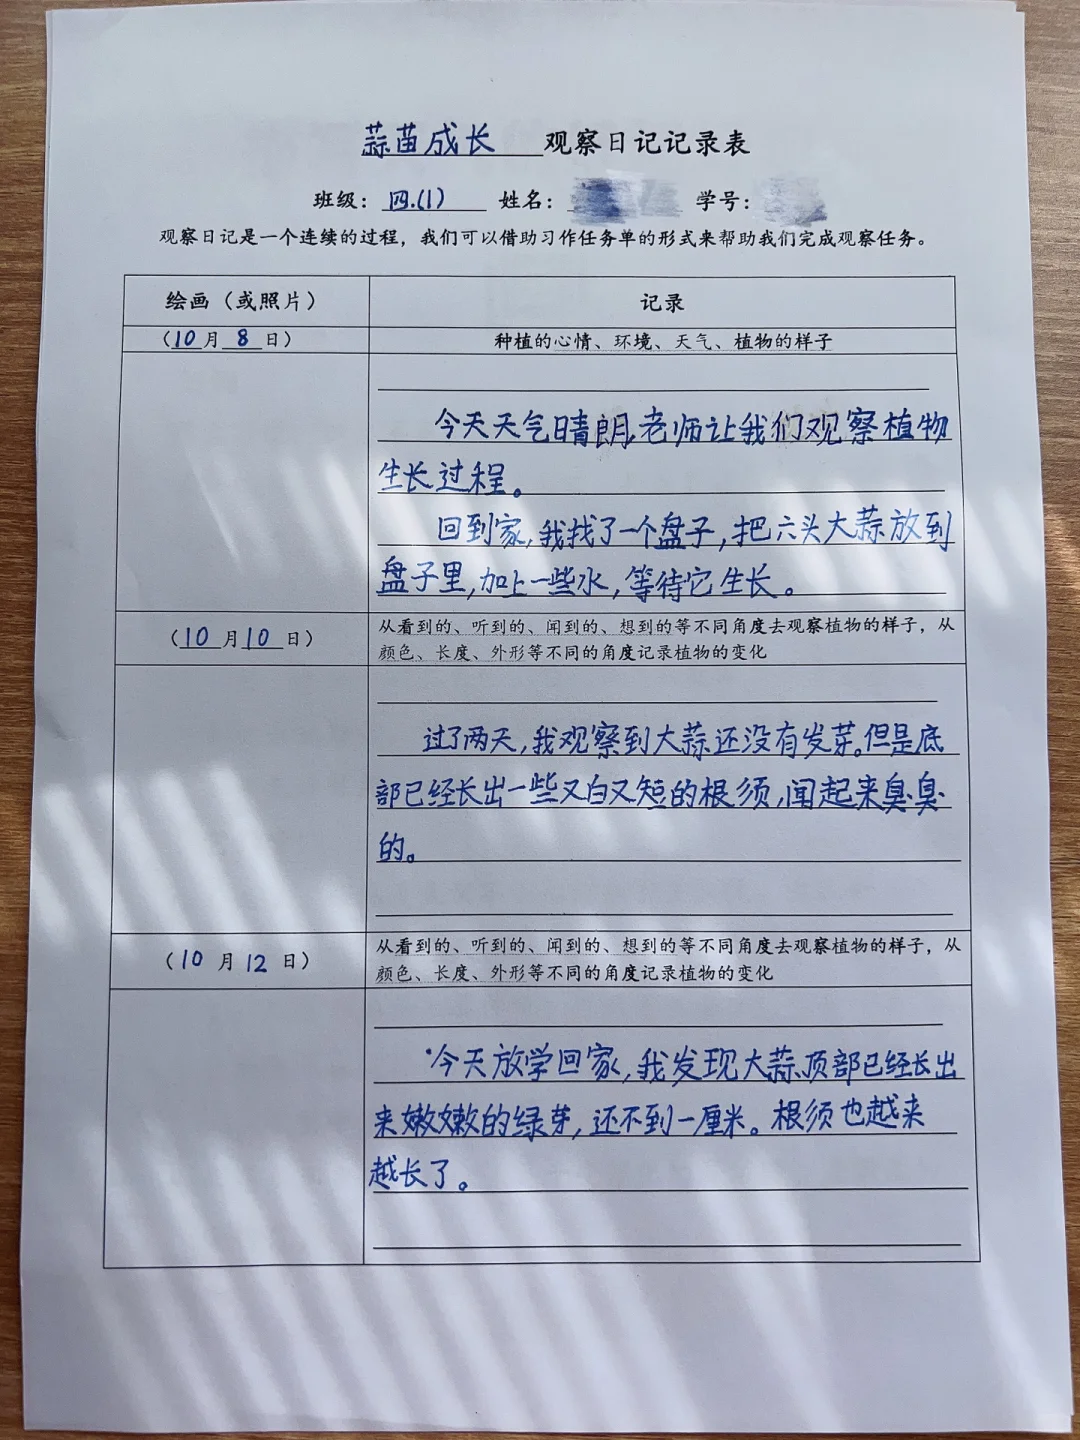 蒜苗成长 观察日记记录表
班级：四.(1) 姓名： 学号：
观察日记是一个连续的过程，我们可以借助习作任务单的形式来帮助我们完成观察任务。
绘画（或照片） 记录
（10月8日） 种植的心情、环境、天气、植物的样子
今天天气晴朗,老师让我们观察植物
生长过程。
回到家,我找了一个盘子,把六头大蒜放到
盘子里,加上一些水,等待它生长。
（10月10日） 从看到的、听到的、闻到的、想到的等不同角度去观察植物的样子，从
颜色、长度、外形等不同的角度记录植物的变化
过了两天,我观察到大蒜还没有发芽。但是底
部已经长出一些又白又短的根须,闻起来臭臭
的。
（10月12日） 从看到的、听到的、闻到的、想到的等不同角度去观察植物的样子，从
颜色、长度、外形等不同的角度记录植物的变化
今天放学回家,我发现大蒜顶部已经长出
来嫩嫩的绿芽,还不到一厘米。根须也越来
越长了。